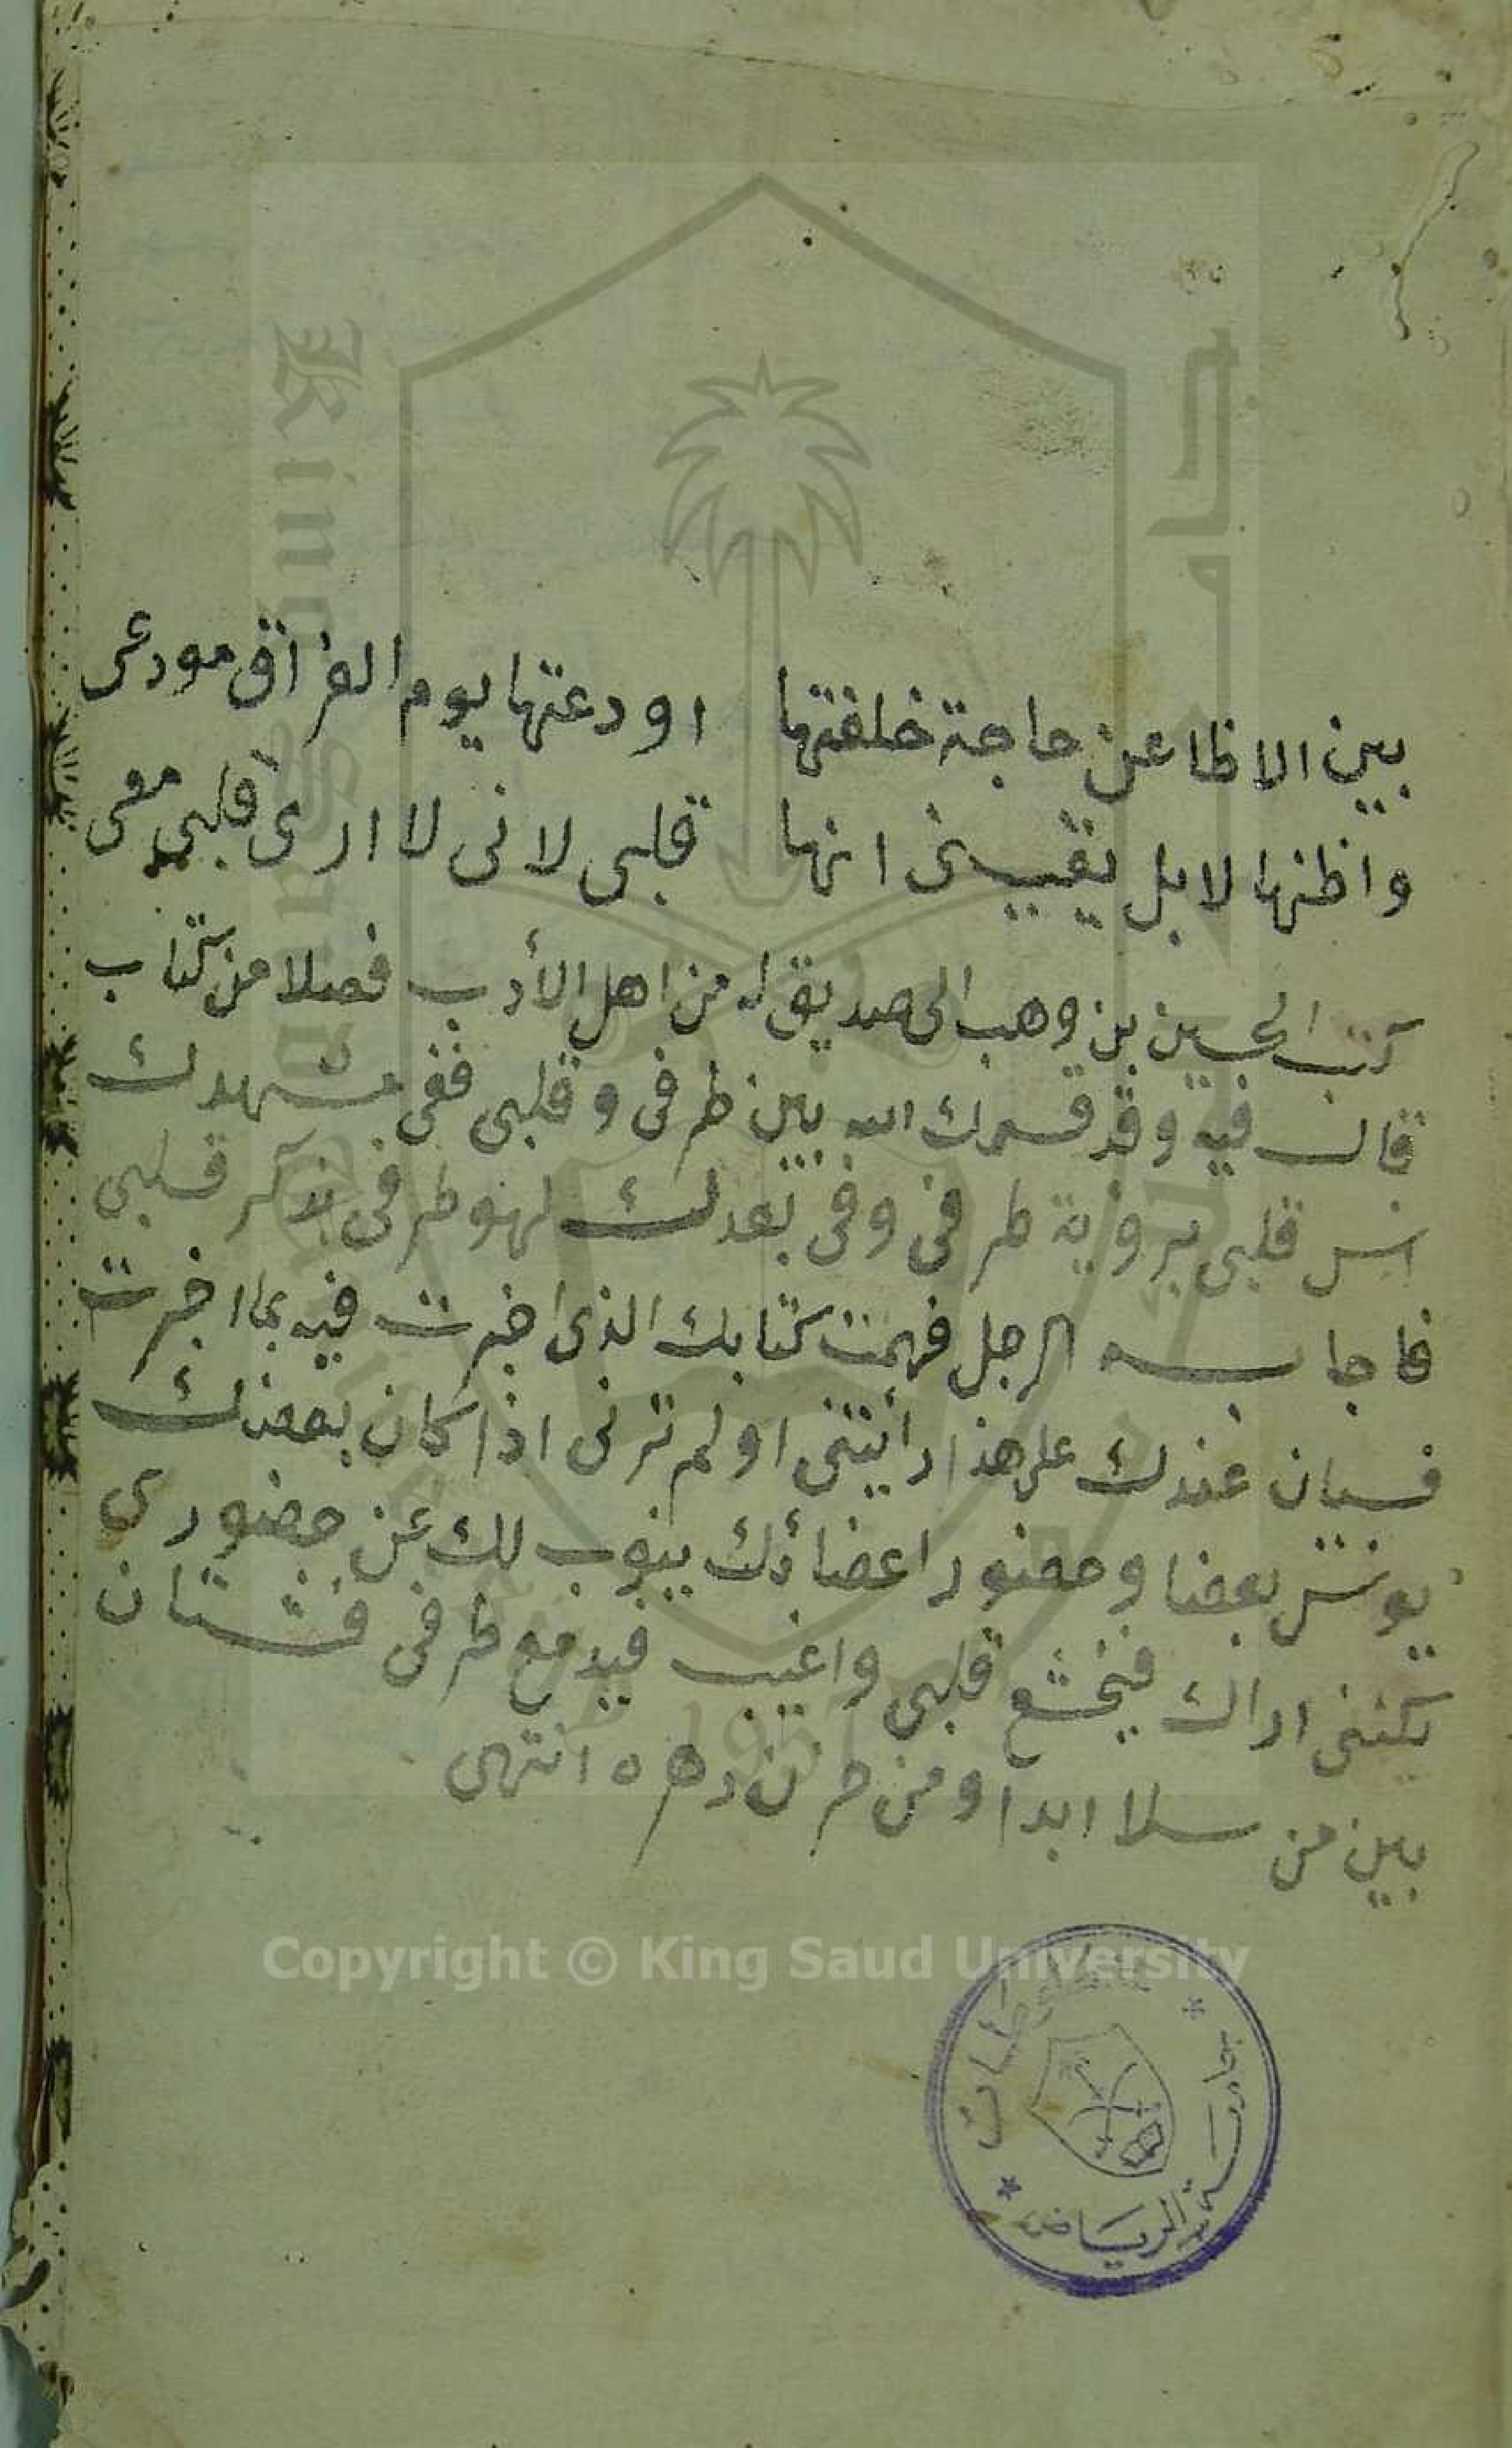 بين الاظاعن حاجة خلفتها اودعتها يوم الفراق مودعى
واظنها لا بل يقيينى انها قلبى لانى لا ارى قلبى معى
كتب الحسين بن وهب الى صديق له من اهل الأدب فصلا من كتاب
قال فيه وقد قسمك الله بين طرفى وقلبى ففى مشهدك
انس قلبى بروية طرفى وفى بعدك لهو طرفى بذكر قلبى
فاجابه الرجل فهمت كتابك الذى اخبرت فيه بما اخبرت
فسيان عندك على هذا رأيتنى او لم ترنى اذا كان بعضك
يونس بعضا وحضور اعضاؤك ينوب لك عن حضورى
لكننى اراك فيخشع قلبى واغيب فيدمع طرفى فشتان
بين من سلا ابدا ومن حزن دهره انتهى
Copyright © King Saud University
King Saud University
1957
جامعة الرياض
مخطوطات